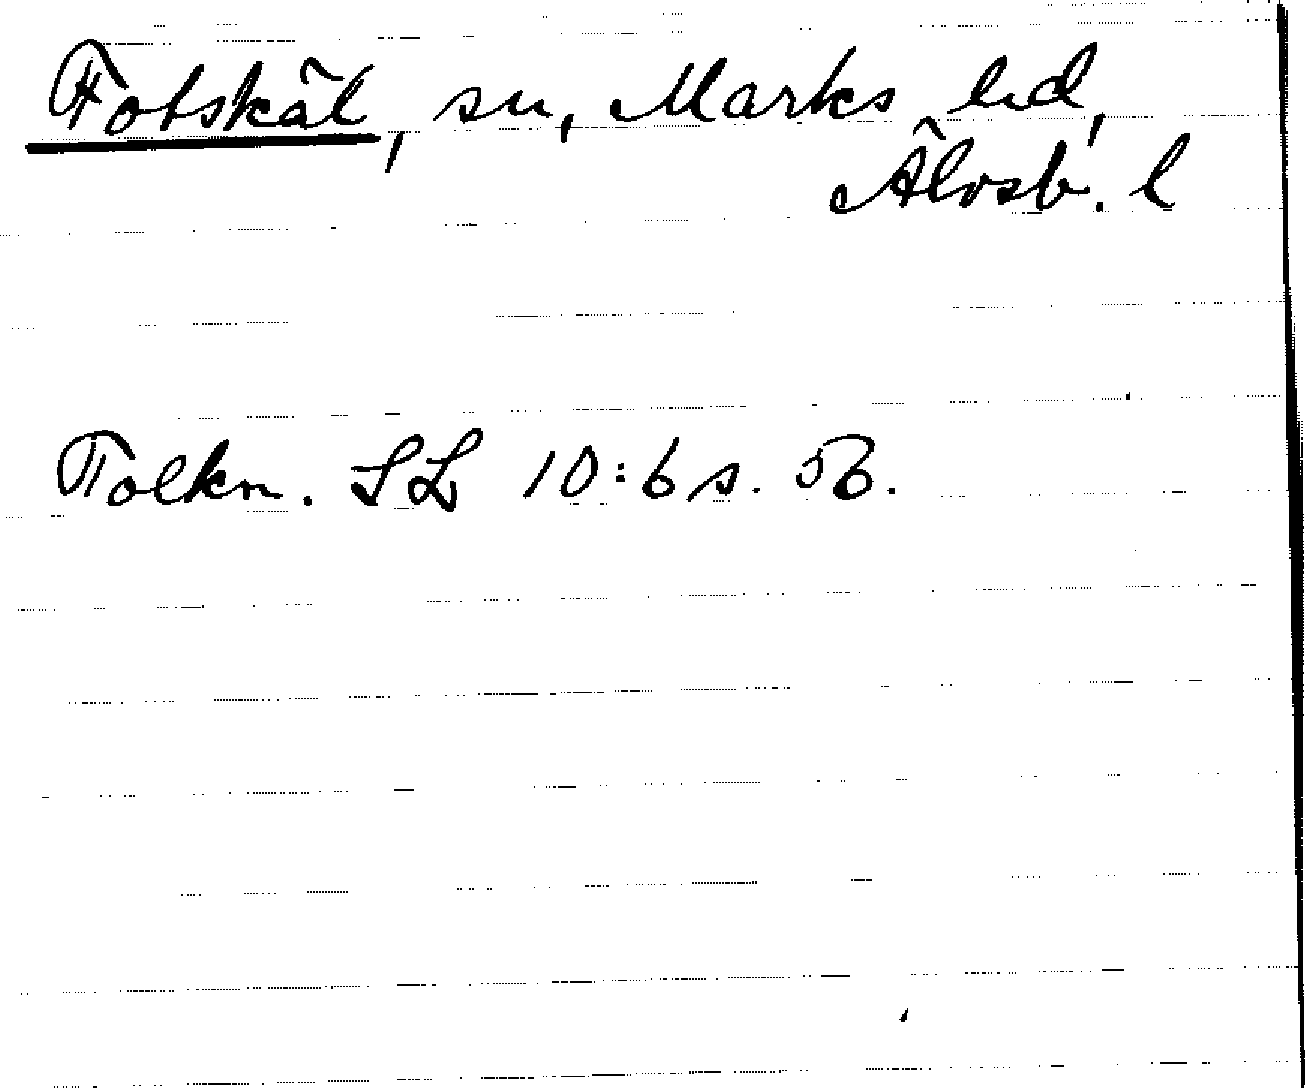 Fotskäl, sn, Marks hd,
Älvsb. l
Folkm. SL 10:6 s. 56.